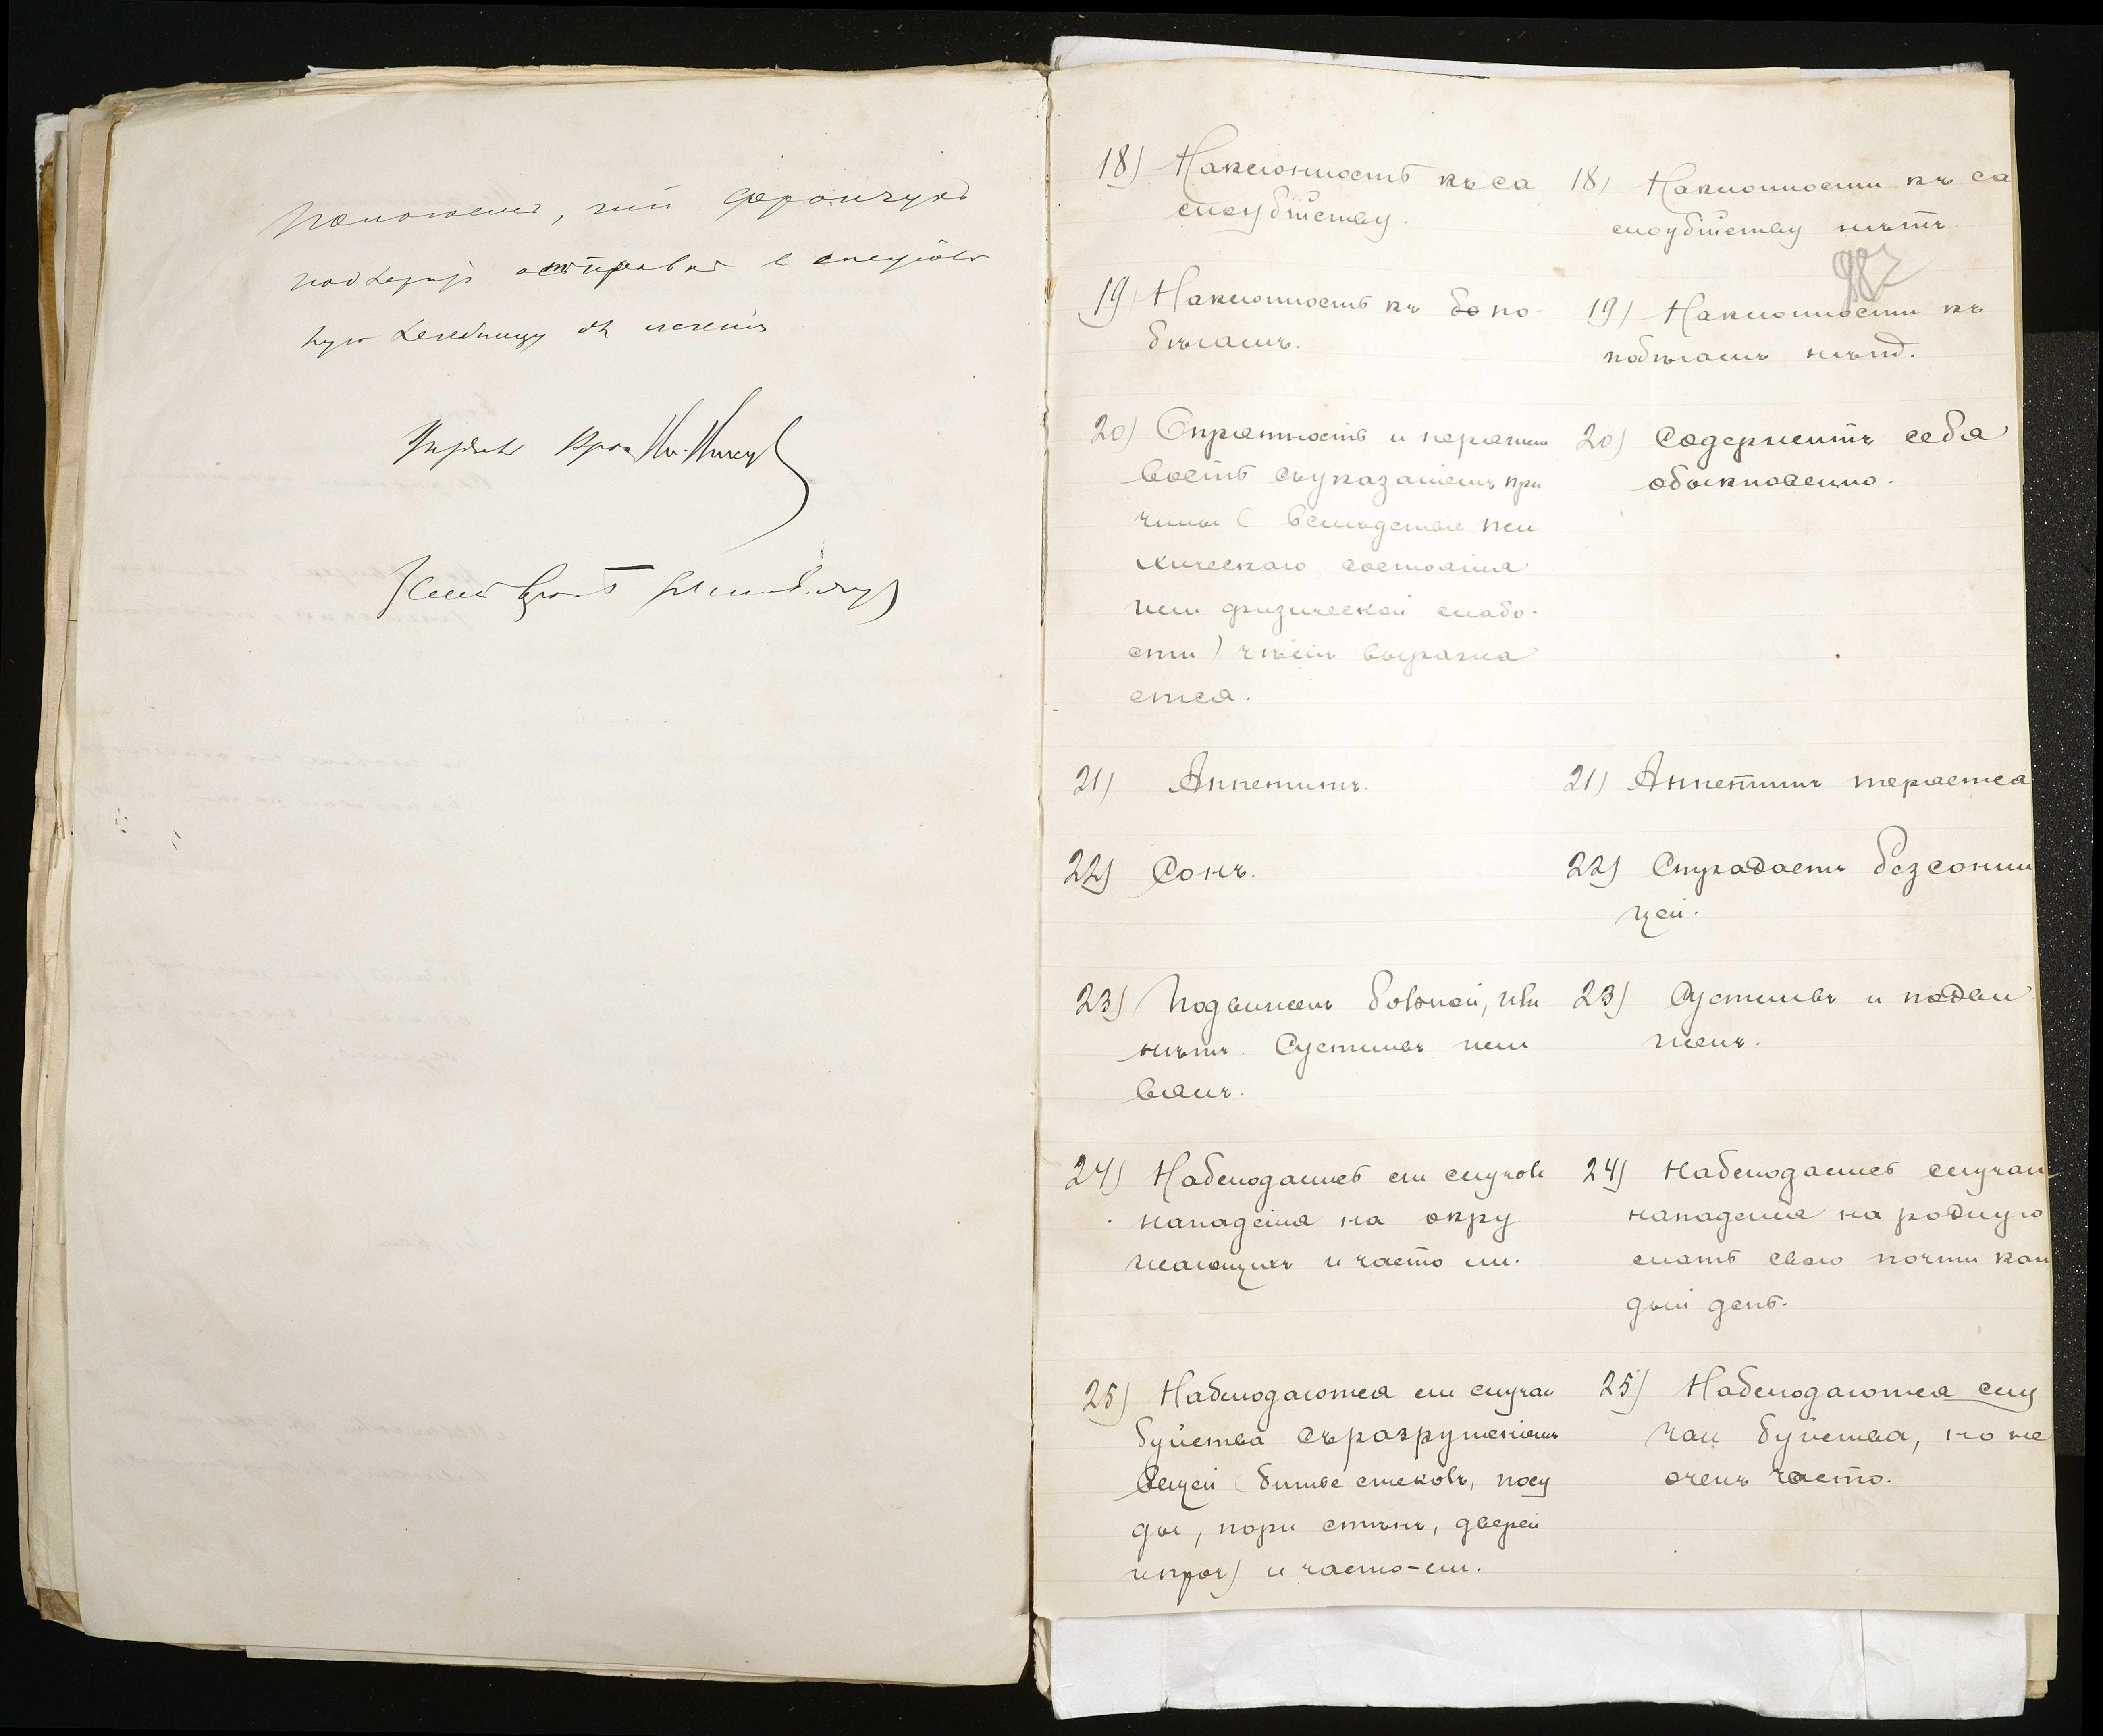 положенія, что Францукъ
подлежитъ отправкѣ въ специаль
ную лечебницу для леченія
18) Наклонность къ са
моубійству.
18) Наклонности къ са
моубійству нѣтъ
982
19) Наклонность къ по
бѣгамъ.
19) Наклонности къ
побѣгамъ нѣтъ.
20) Опрятность и неряшли
вость съ указаніемъ при
чины (вслѣдствіе пси
хическаго состоянія
или физической слабо-
сти) чѣмъ выража
ется.
20) Содержитъ себя
обыкновенно.
21) Аппетитъ.
21) Аппетитъ теряется
22) Сонъ.
22) Страдаетъ безсонни
цей.
23) Подвиженъ больной, или
нѣтъ. Суетливъ или
вялъ.
23) Суетливъ и подви
женъ.
24) Наблюдались ли случаи
нападенія на окру
жающихъ и часто ли.
24) Наблюдались случаи
нападенія на родную
мать свою почти каж
дый день.
25) Наблюдаются ли случаи
буйства съ разрушеніемъ
вещей (битье стеколъ, посу
ды, порчи стѣнъ, дверей
и проч) и часто-ли.
25) Наблюдаются слу
чаи буйства, но не
очень часто.